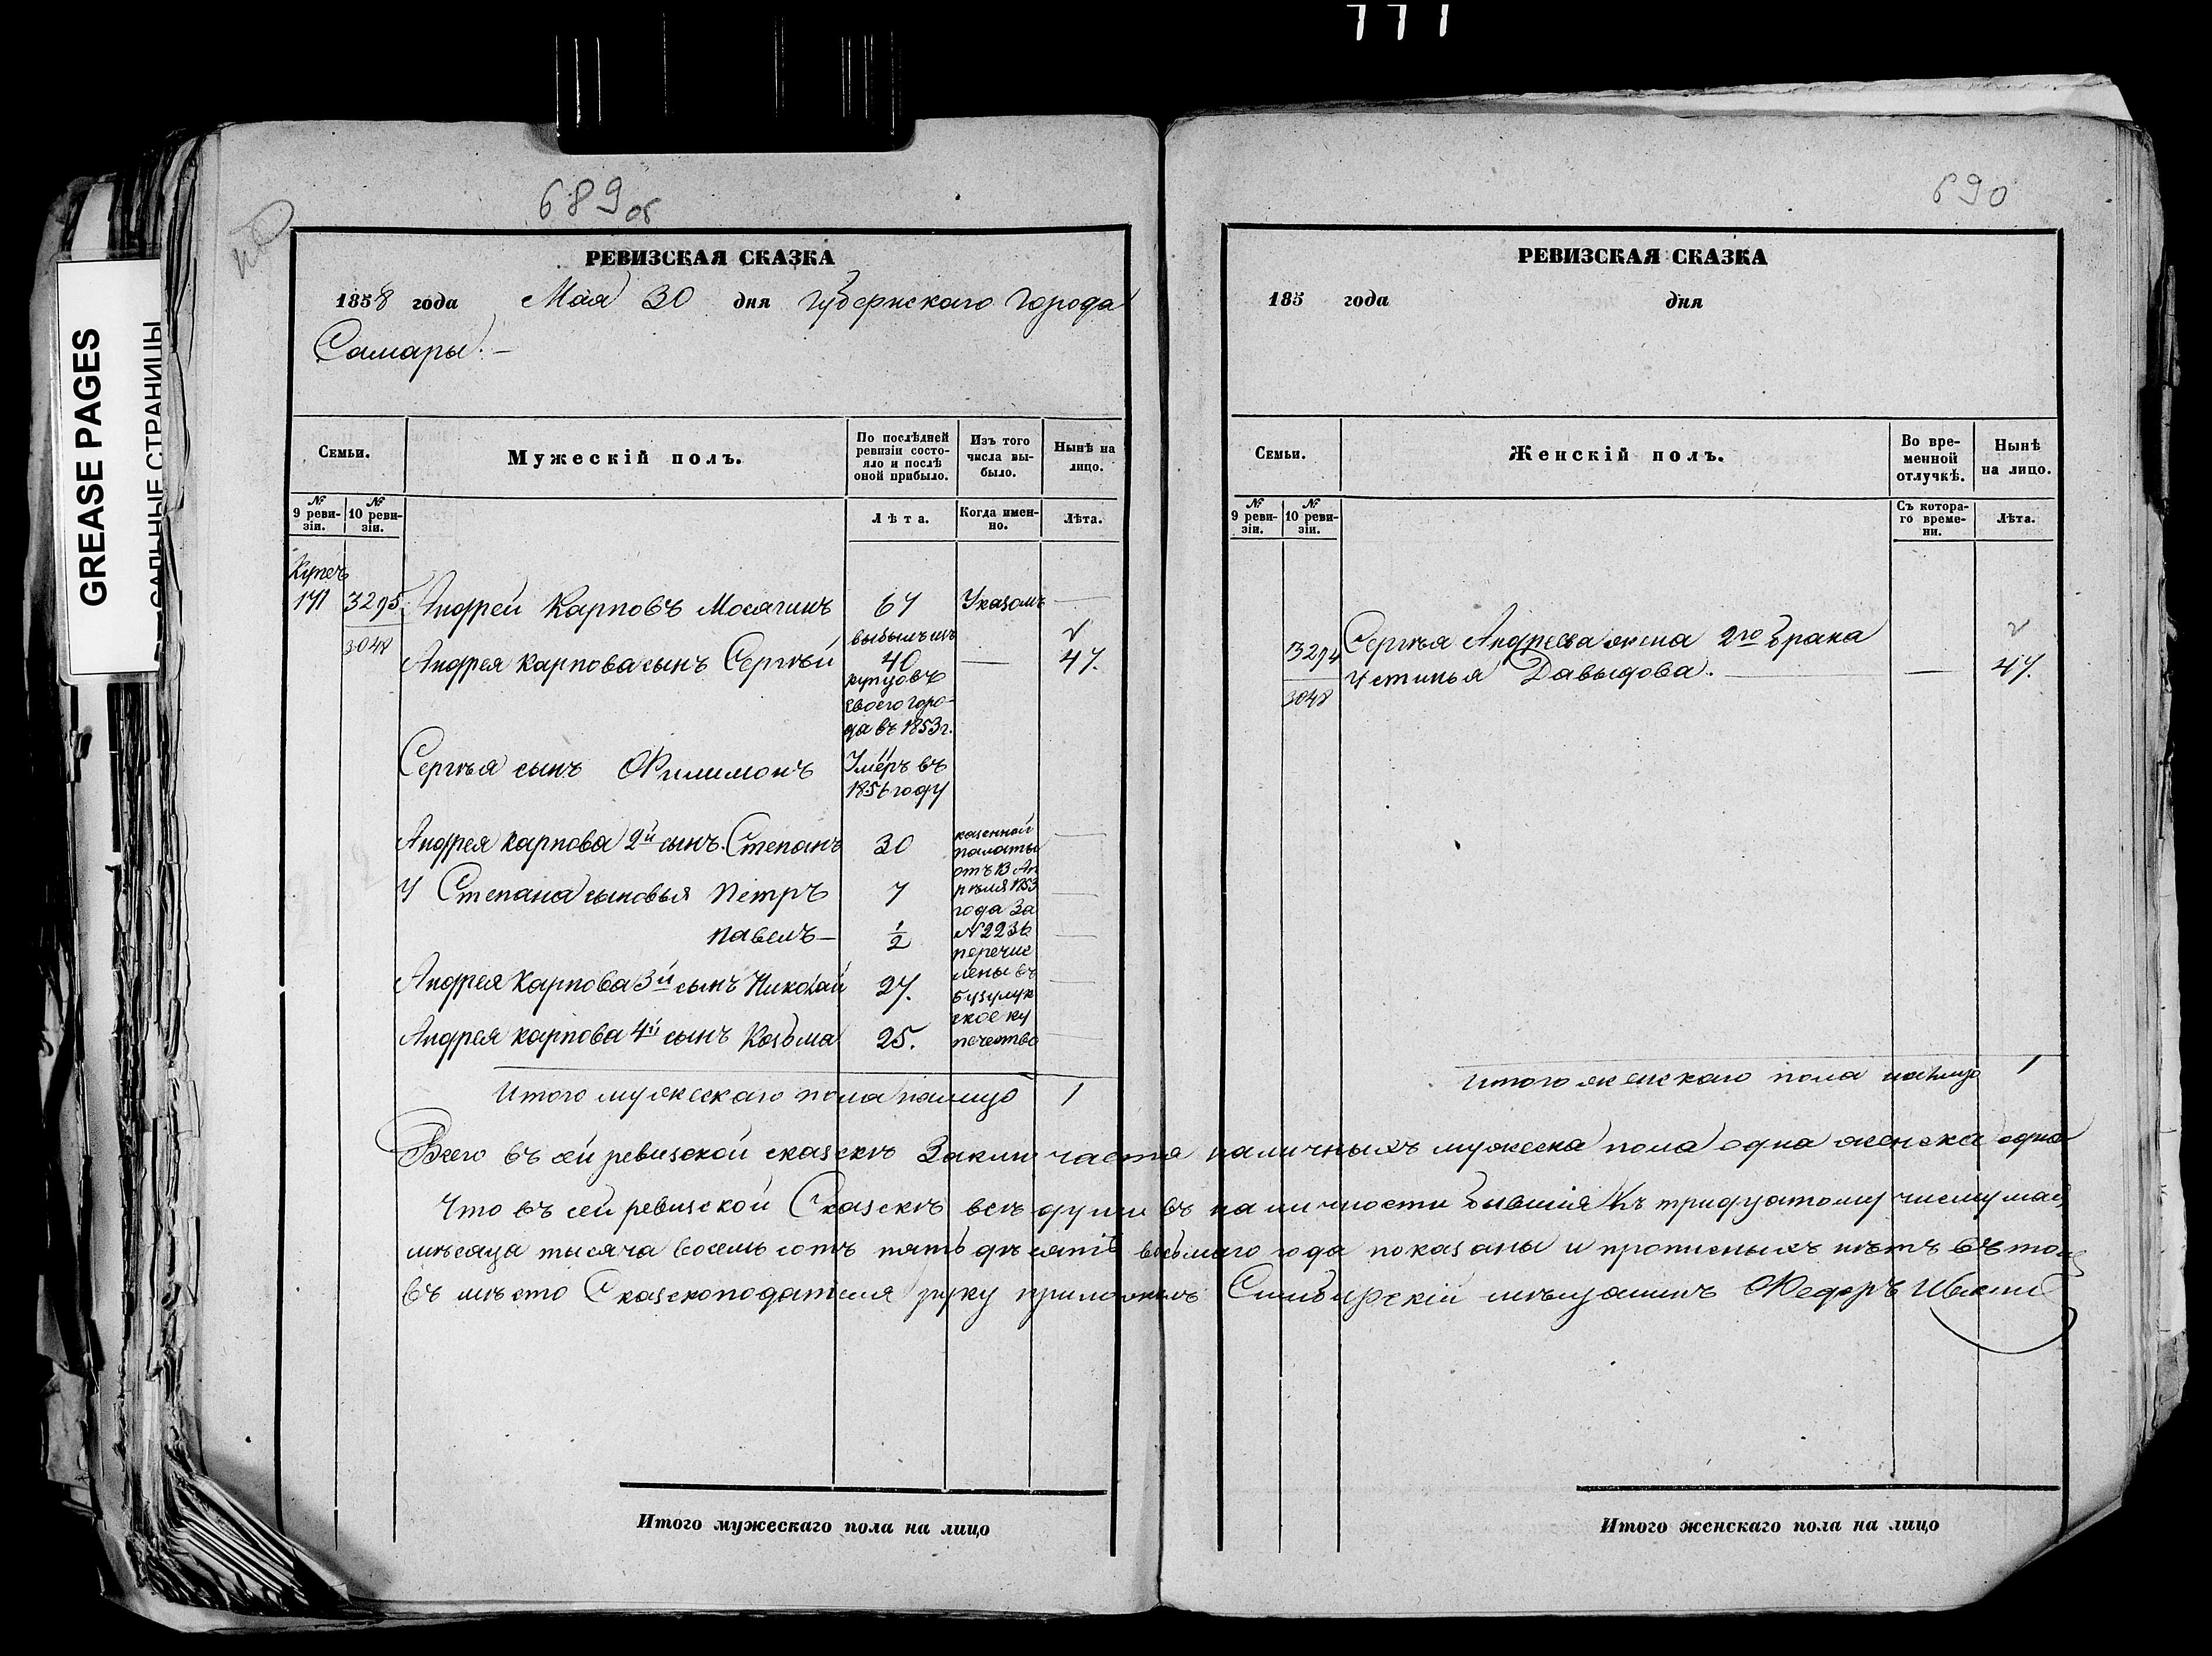 777
GREASE PAGES
САЛЬНЫЕ СТРАНИЦЫ
689 об
РЕВИЗСКАЯ СКАЗКА
1858 года Мая 30 дня Губернскаго города
Самары. –
Семьи.
Мужескій полъ.
По послѣдней ревизіи состо-
яло и послѣ
оной прибыло.
Изъ того
числа вы-
было.
Нынѣ на
лицо.
№ 9 реви-
зіи.
№ 10 реви-
зіи.
Лѣта.
Когда имен-
но.
Лѣта.
Купеч
171 3295 Андрей Карповъ Мосягинъ 67 Указомъ —
3048
выбылъ изъ
Андрея Карпова сынъ Сергѣй 40 — 47.
купцовъ
своего горо-
да въ 1853 г.
Сергѣя сынъ Филимонъ Умеръ въ
1856 году
Андрея Карпова 2й сынъ Степанъ 30 —
У Степана сыновья Петръ 7 —
Павелъ — 1/2 —
Андрея Карпова 3й сынъ Николай 27. —
Андрея Карпова 4й сынъ Козьма 25. —
казенной
палаты
отъ 13 Ап
рѣля 1853
года за
№ 2236
перечис
лены въ
Бузулук
ское ку
печество
Итого мужескаго пола налицо 1
690
РЕВИЗСКАЯ СКАЗКА
185 года дня
Семьи.
Женскій полъ.
Во вре-
менной
отлучкѣ.
Нынѣ
на лицо.
№ 9 реви-
зіи.
№ 10 реви-
зіи.
Съ котора-
го време-
ни.
Лѣта.
3294 Сергѣя Андреева жена 2го брака
3048 Устинья Давыдова. — 47.
Итого женскаго пола налицо 1
Всего въ сей ревизской сказскѣ Заключаетя наличныхъ мужеска пола одна женска одна
Что въ сей ревизской Сказскѣ всѣ души въ наличности бывшія Къ тридцатому числу мая
мѣсяца тысяча восемь сотъ пятьдѣсятъ восьмаго года показаны и прописныхъ нѣтъ въ томъ
въ мѣсто Сказскоподателя руку приложилъ Симбирскій мѣщанинъ Федоръ
Итого мужескаго пола на лицо
Итого женскаго пола на лицо